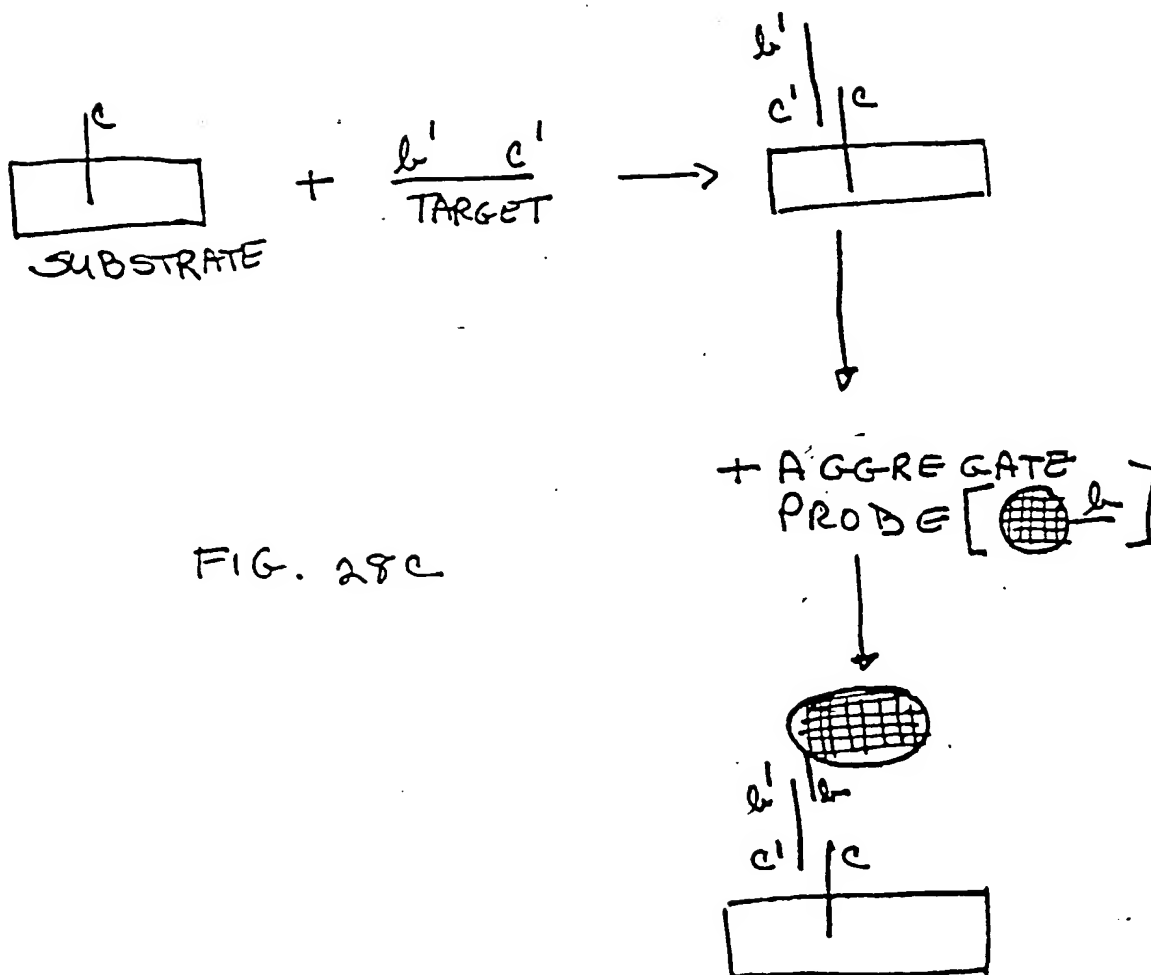 c
SUBSTRATE
+
b' c'
TARGET
b'
c' c
+ AGGREGATE
PROBE [ b ]
FIG. 28c
b' b
c' c